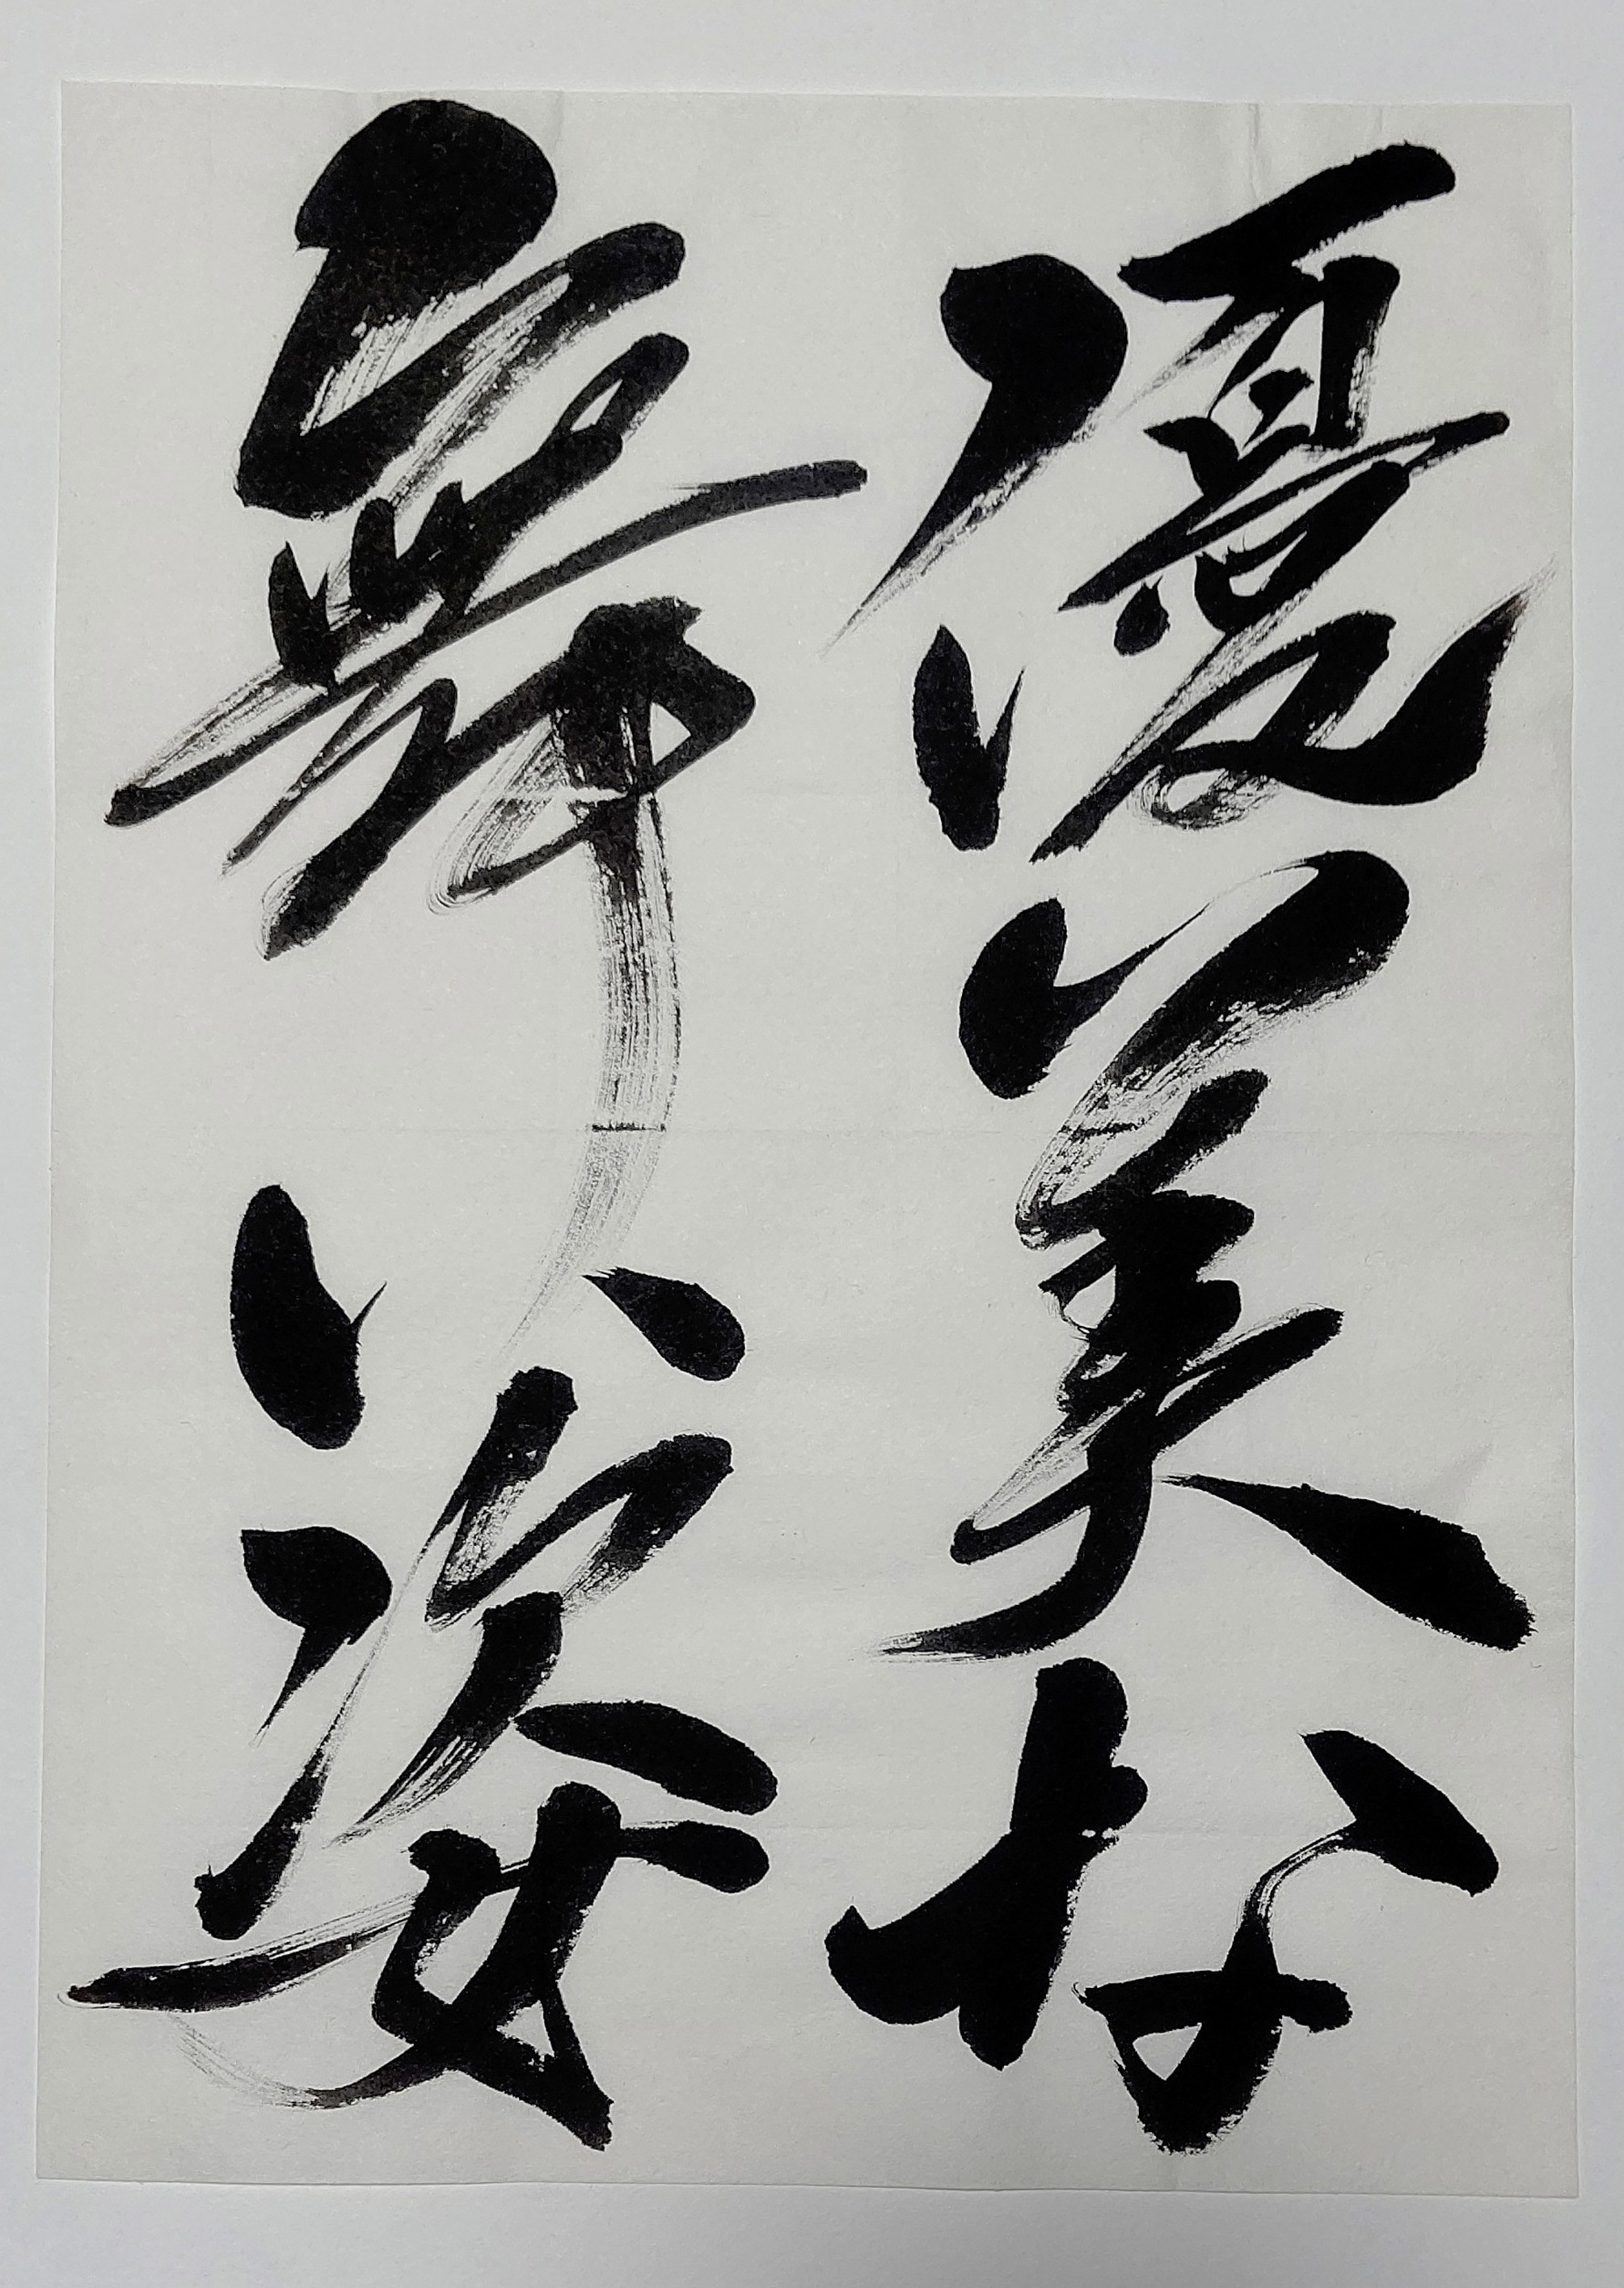 優美な
舞い姿